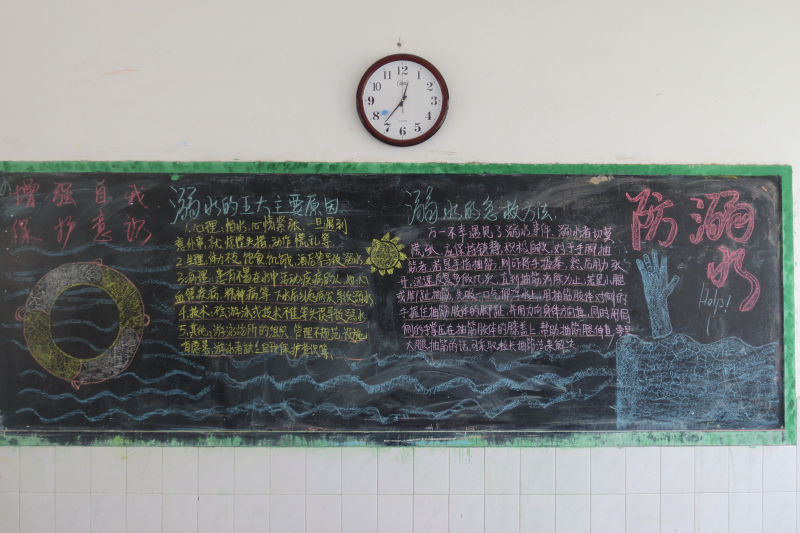 增强自我
保护意识
溺水的五大主要原因
1.心理:怕水,心情紧张,一旦遇到
意外事,就惊慌失措,动作慌乱等
2.生理:体力
饱食、饥饿、酒后等导致溺水
3.病理:患有不宜在水中活动疾病的人,如心
血管疾病、精神病等下水后引起病发导致溺水
4.技术:
游泳技术不佳等失误导致溺水
5.其他:游泳场所的组织、管理不规范,设施
溺水的急救方法
万一不幸遇见了溺水事件,溺水者切莫
慌张,应保持镇静,积极自救,对于手脚抽
筋者,若是手指抽筋,则可将手握拳,然后用力张
开,迅速反复多做几次,直到抽筋消除为止;若是小腿
或脚趾抽筋,先吸一口气仰浮水上,用抽筋肢体对侧的
手握住抽筋肢体的脚趾,并用力向身体方向拉,同时用同
侧的手掌压在抽筋肢体的膝盖上,帮助抽筋腿伸直;要是
大腿抽筋的话,可采取拉长抽筋
防溺
水
Help!
12
1
2
3
4
5
6
7
8
9
10
11